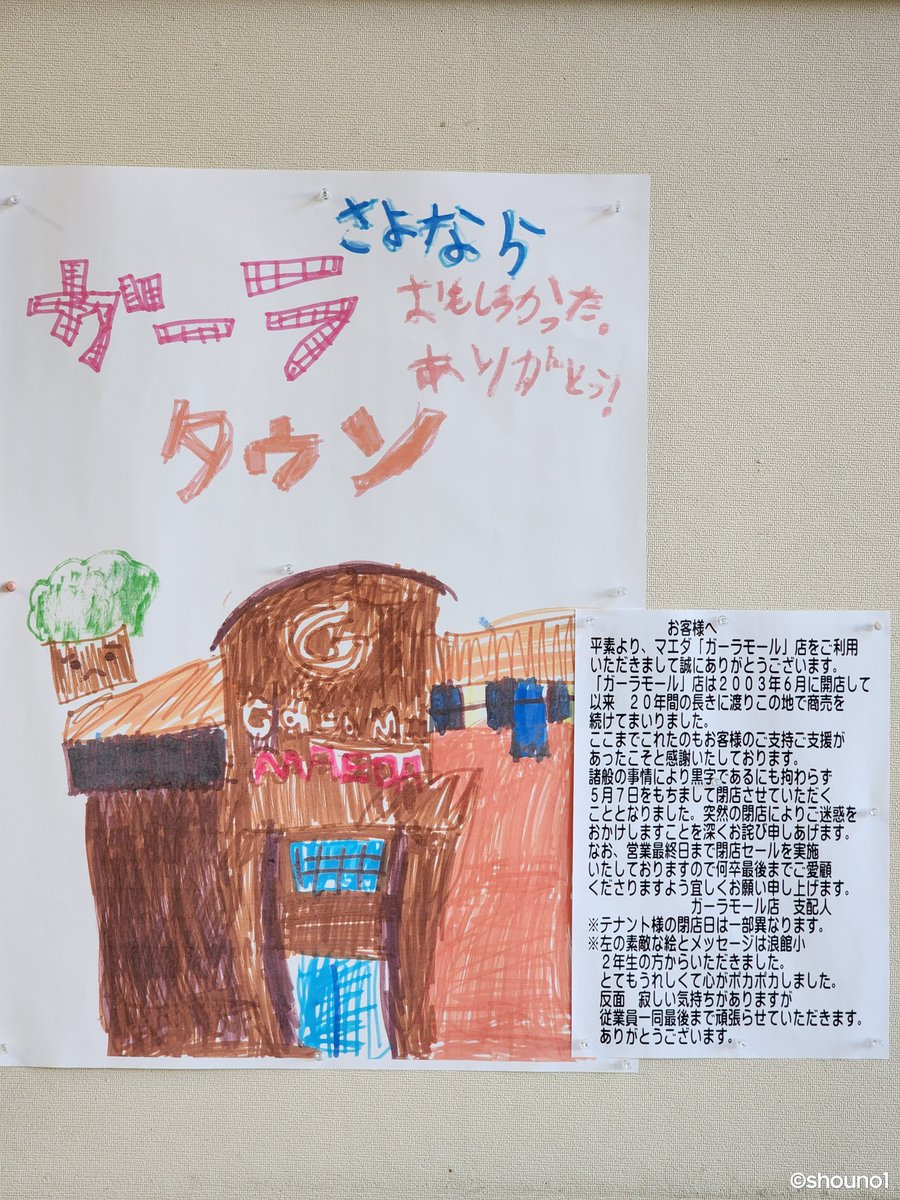 さよなら
ガーラ
おもしろかった。
ありがとう!
タウン
G
MAEDA
お客様へ
平素より、マエダ「ガーラモール」店をご利用
いただきまして誠にありがとうございます。
「ガーラモール」店は2003年6月に開店して
以来 20年間の長きに渡りこの地で商売を
続けてまいりました。
ここまでこれたのもお客様のご支持ご支援が
あったこそと感謝いたしております。
諸般の事情により黒字であるにも拘わらず
5月7日をもちまして閉店させていただく
こととなりました。突然の閉店によりご迷惑を
おかけしますことを深くお詫び申しあげます。
なお、営業最終日まで閉店セールを実施
いたしておりますので何卒最後までご愛顧
くださりますよう宜しくお願い申し上げます。
ガーラモール店 支配人
※テナント様の閉店日は一部異なります。
※左の素敵な絵とメッセージは浪館小
2年生の方からいただきました。
とてもうれしくて心がポカポカしました。
反面 寂しい気持ちがありますが
従業員一同最後まで頑張らせていただきます。
ありがとうございます。
©shouno1